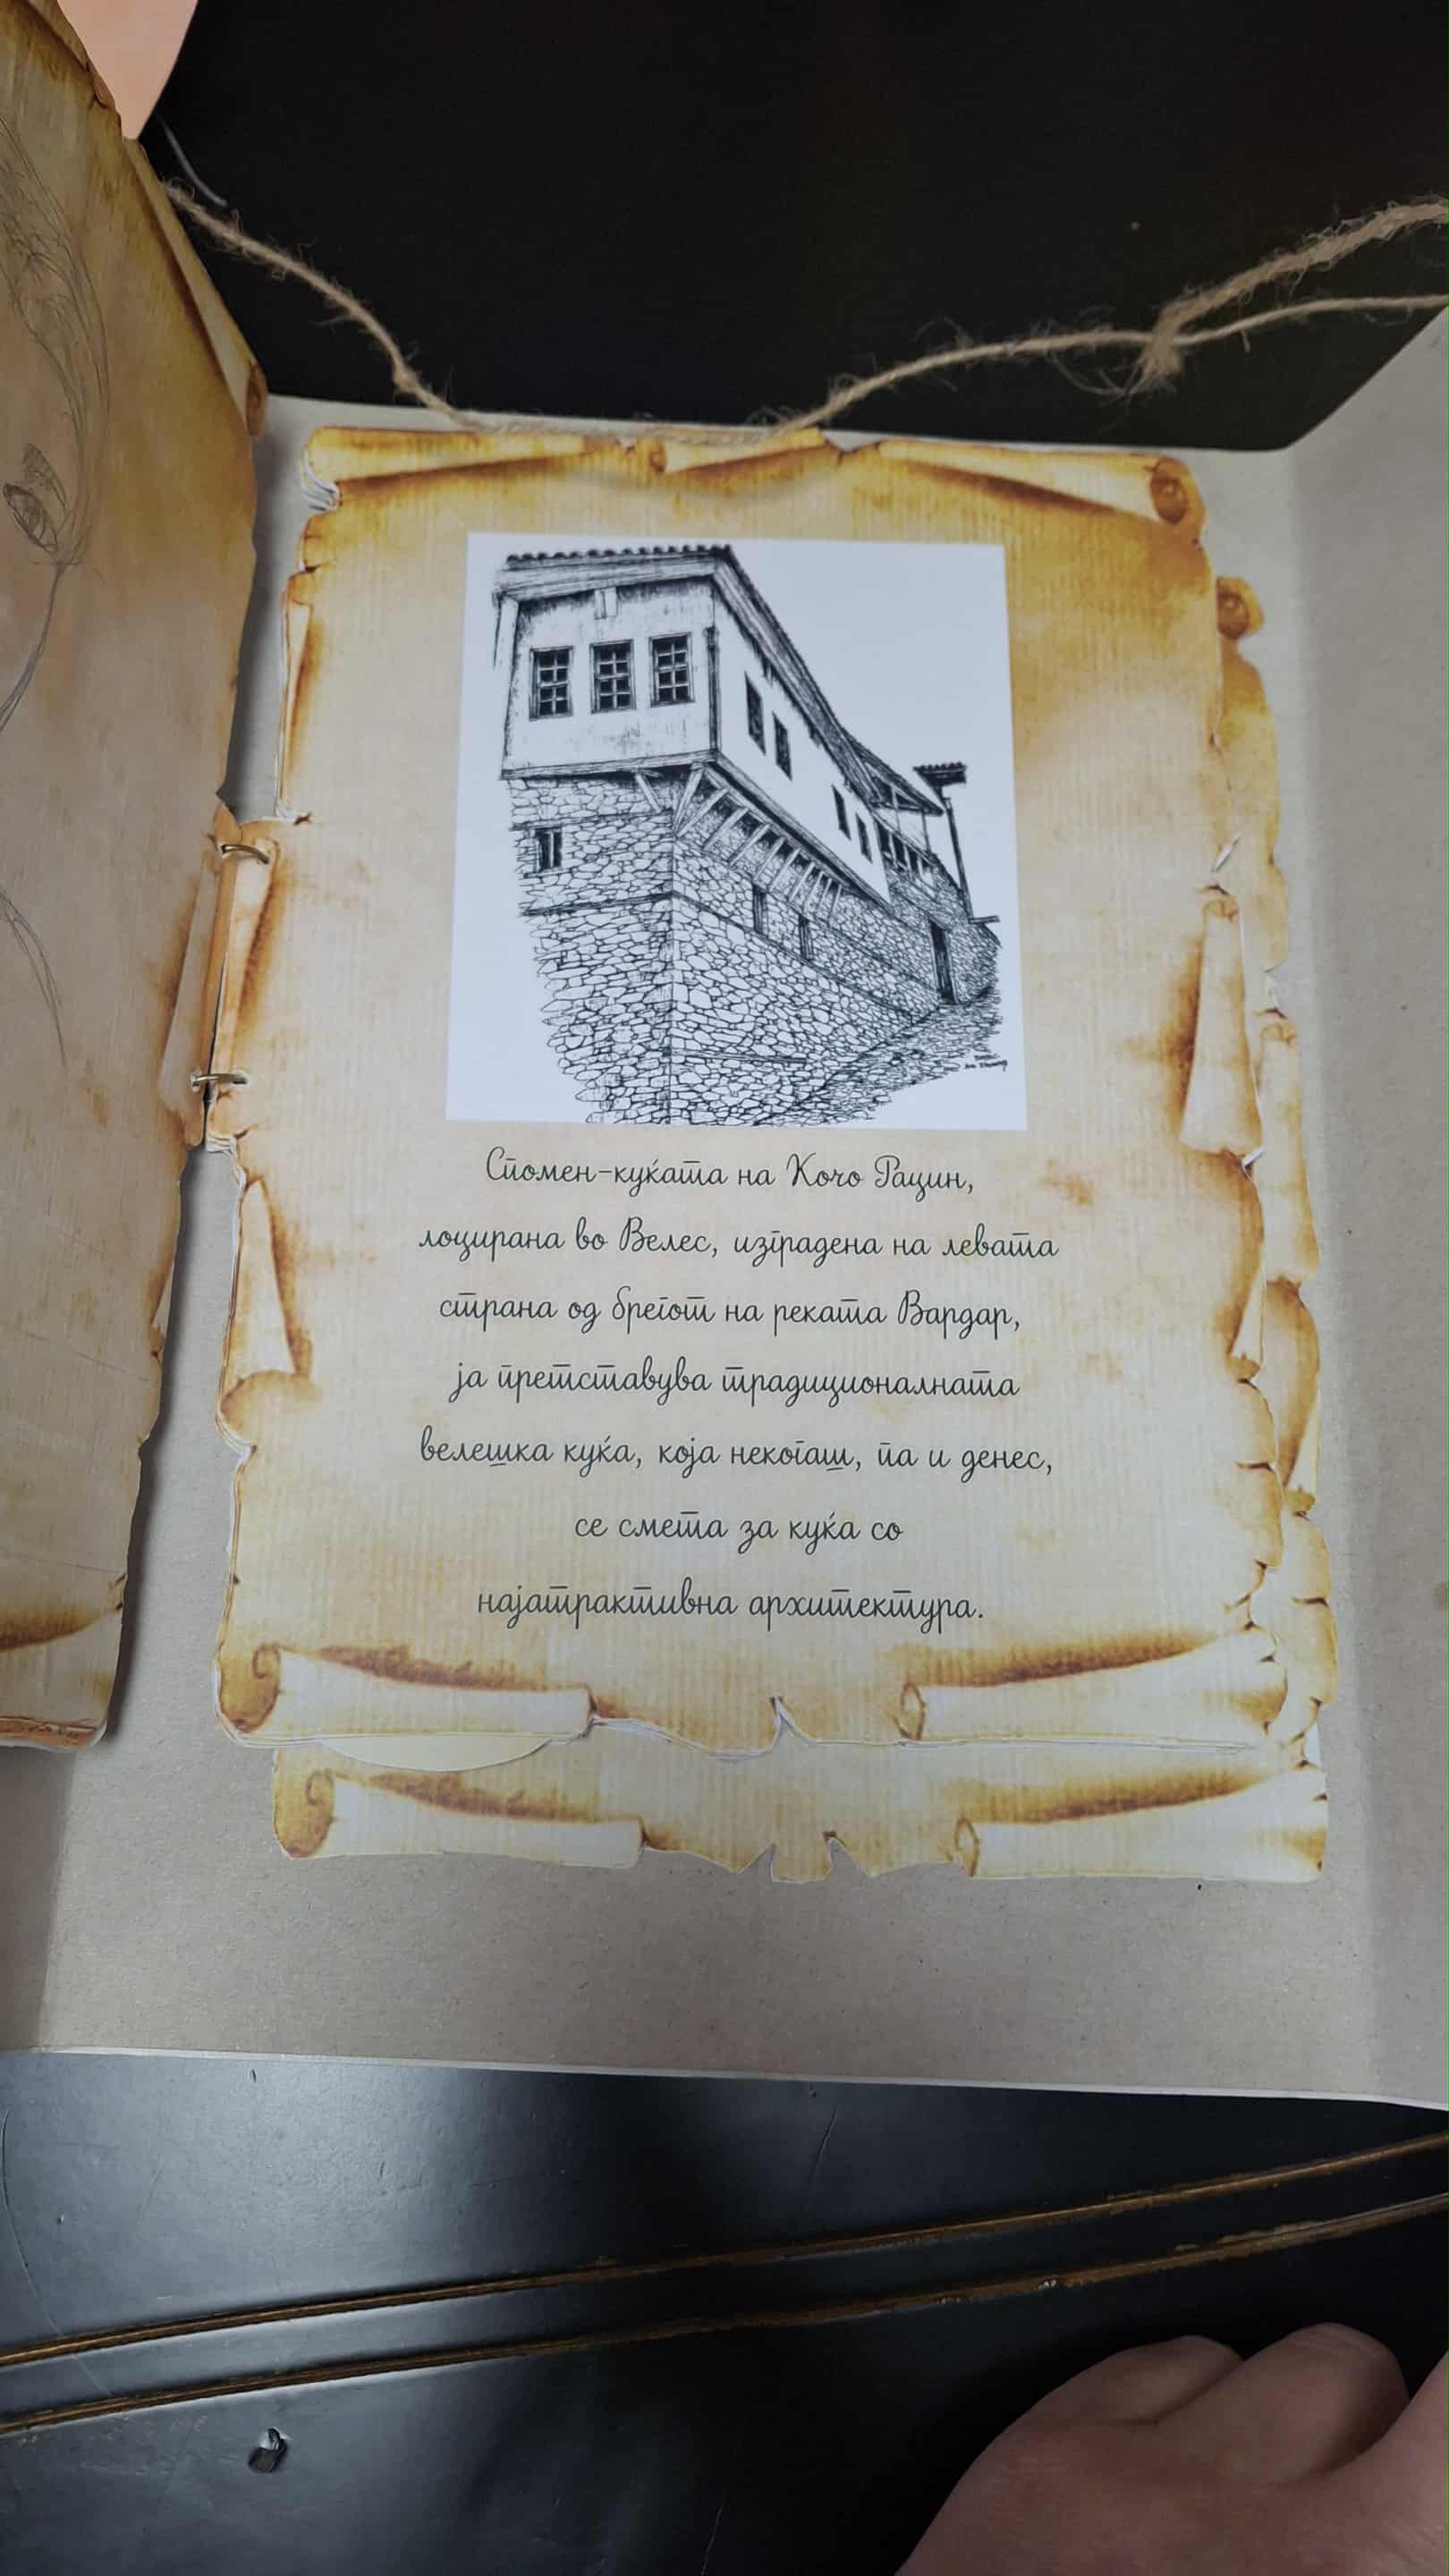 Спомен-куќата на Кочо Рацин,
лоцирана во Велес, изградена на левата
страна од брегот на реката Вардар,
ја претставува традиционалната
велешка куќа, која некогаш, па и денес,
се смета за куќа со
најатрактивна архитектура.